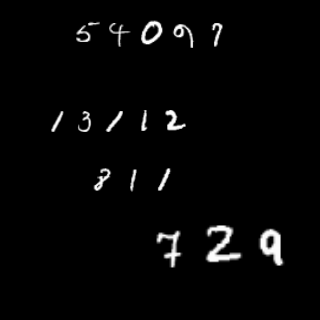 54097
13112
811
729